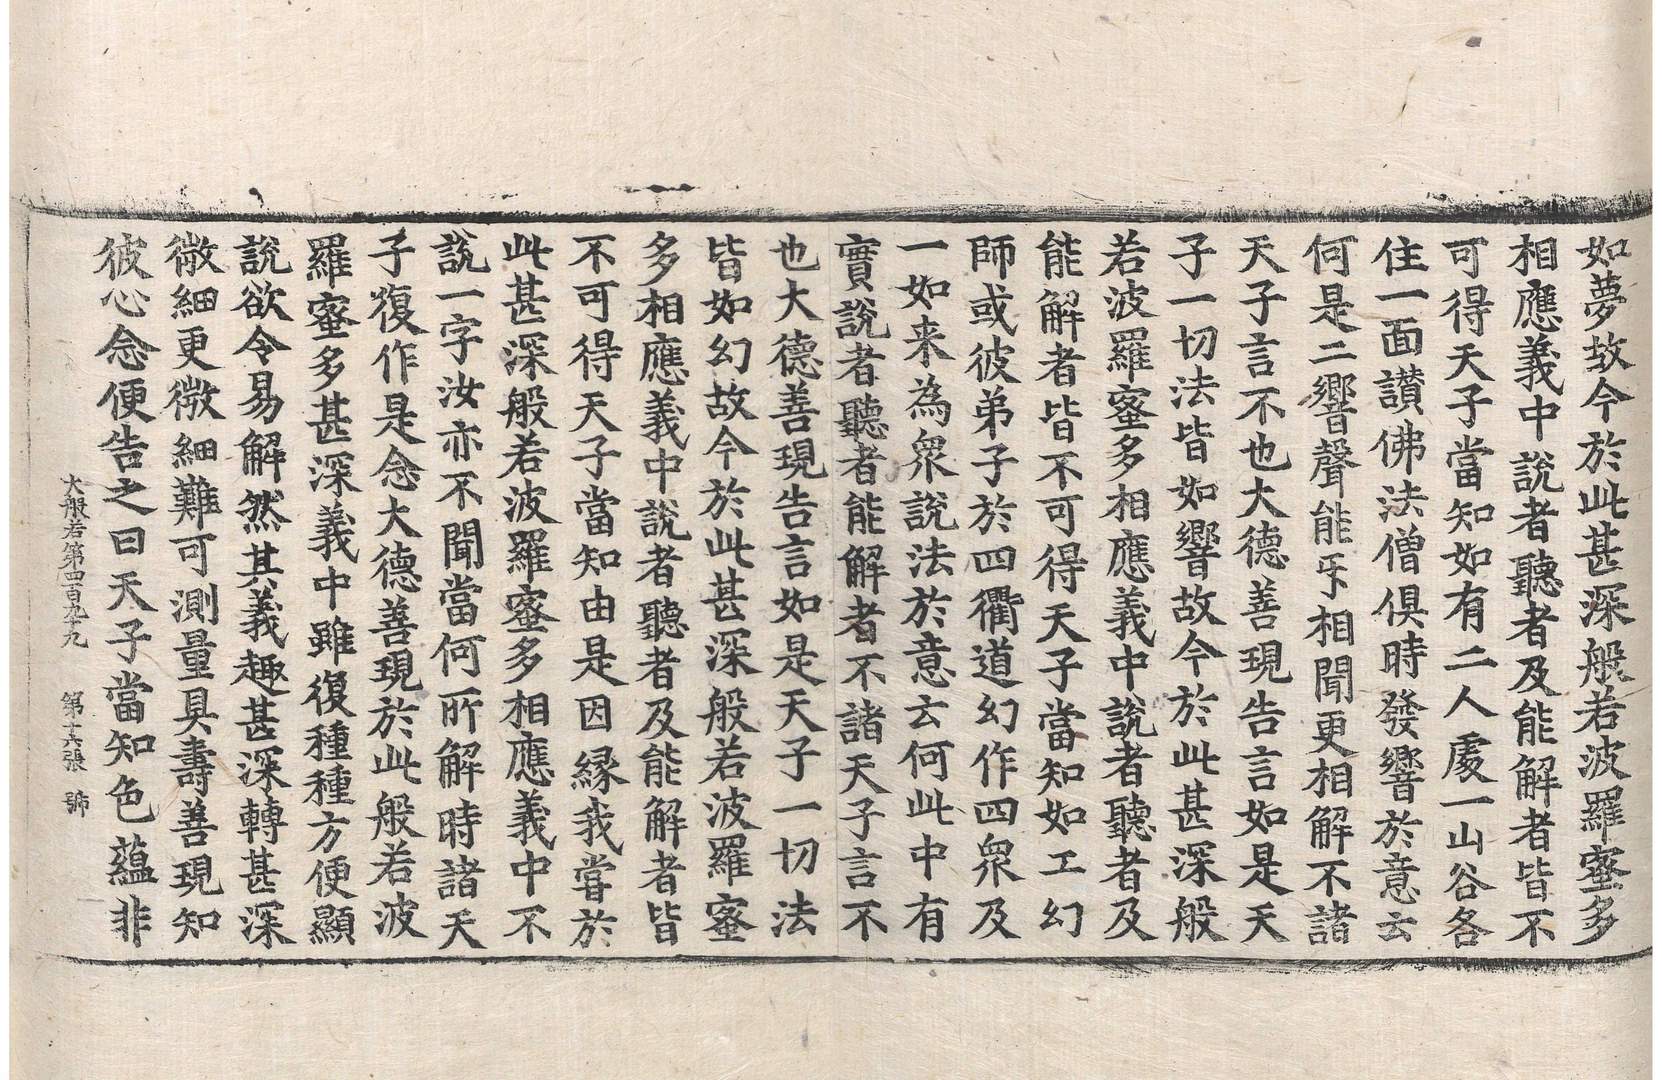 如夢故今於此甚深般若波羅蜜多
相應義中說者聽者及能解者皆不
可得天子當知如有二人處一山谷各
住一面讃佛法僧俱時發響於意云
何是二響聲能㸦相聞更相解不諸
天子言不也大德善現告言如是天
子一切法皆如響故今於此甚深般
若波羅蜜多相應義中說者聽者及
能解者皆不可得天子當知如工幻
師或彼弟子於四衢道幻作四眾及
一如来為眾說法於意云何此中有
實說者聽者能解者不諸天子言不
也大德善現告言如是天子一切法
皆如幻故今於此甚深般若波羅蜜
多相應義中說者聽者及能解者皆
不可得天子當知由是因緣我嘗於
此甚深般若波羅蜜多相應義中不
說一字汝亦不聞當何所解時諸天
子復作是念大德善現於此般若波
羅蜜多甚深義中雖復種種方便顯
說欲令易解然其義趣甚深轉甚深
微細更微細難可測量具壽善現知
彼心念便告之曰天子當知色蘊非
大般若第四百九十九 第十六張 號